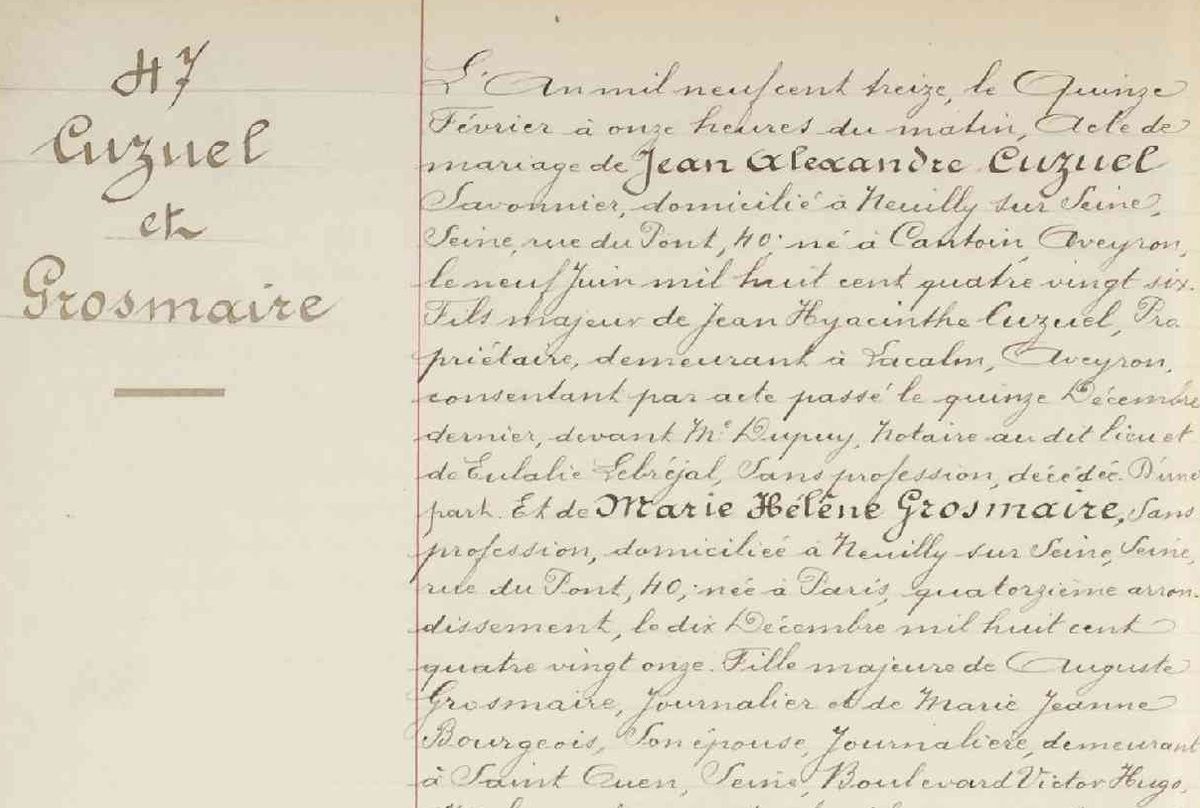 47
Cuzuel
et
Grosmaire
L'An mil neuf cent treize, le Quinze
Février à onze heures du matin, Acte de
mariage de Jean Alexandre Cuzuel
Savonnier, domicilié à Neuilly sur Seine,
Seine, rue du Pont, 40; né à Cantoin, Aveyron,
le neuf Juin mil huit cent quatre vingt six.
Fils majeur de Jean Hyacinthe Cuzuel, Pro
priétaire, demeurant à Lacalm, Aveyron,
consentant par acte passé le quinze Décembre
dernier, devant Me Dupuy, Notaire au dit lieu et
de Eulalie Lebréjal, Sans profession, décédée. D'une
part. Et de Marie Hélène Grosmaire, Sans
profession, domiciliée à Neuilly sur Seine, Seine,
rue du Pont, 40; née à Paris, quatorzième arron-
dissement, le dix Décembre mil huit cent
quatre vingt onze. Fille majeure de Auguste
Grosmaire, Journalier et de Marie Jeanne
Bourgeois, Son épouse, Journalière, demeurant
à Saint Ouen, Seine, Boulevard Victor Hugo,